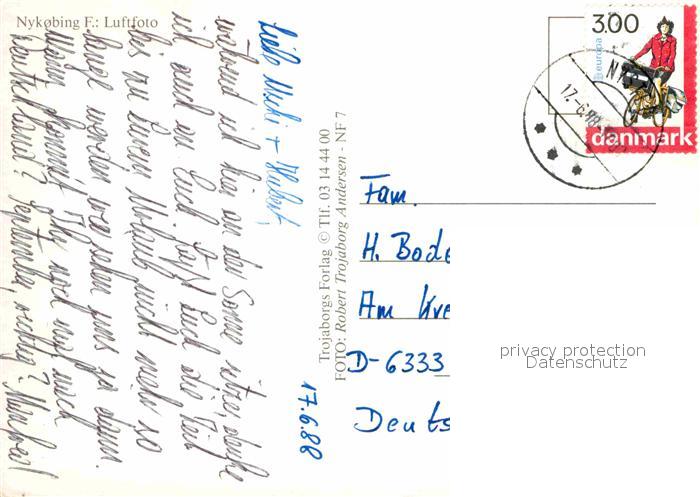 Nykøbing F.: Luftfoto
Liebe Uschi + Hubert,
während ich hier an der Sonne sitze, denke
ich auch an Euch. Laßt Euch die Zeit
bis zu Eurem Urlaub nicht mehr so
lange werden wir sehen uns ja dann.
Wann kommt Ihr noch mal nach
Deutschland? September, richtig? Manfred
17.6.88
Trojaborgs Forlag © Tlf. 03 14 44 00
FOTO: Robert Trojaborg Andersen - NF 7
3.00
europa
danmark
17.-6.88
Fam.
H. Bode
Am
D-6333
Deuts
privacy protection
Datenschutz